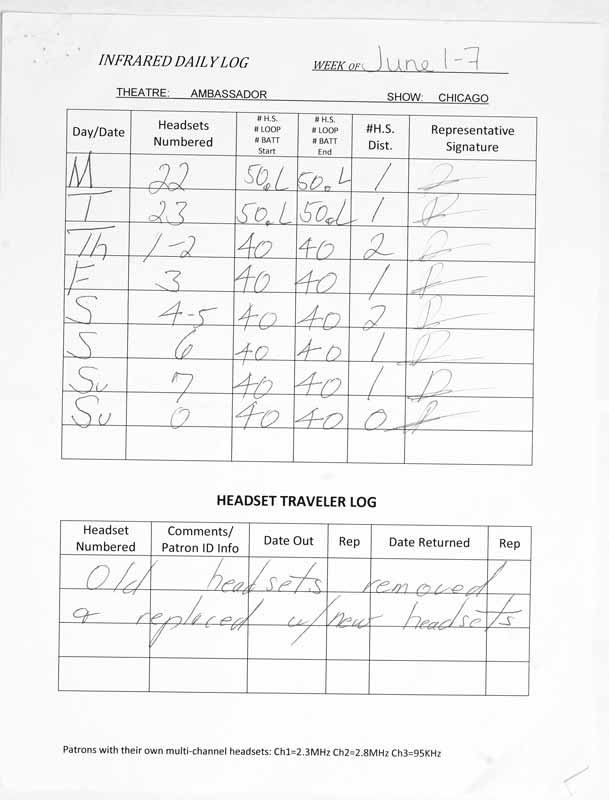 INFRARED DAILY LOG WEEK OF June 1-7
THEATRE: AMBASSADOR SHOW: CHICAGO
Day/Date Headsets Numbered # H.S. # LOOP # BATT Start # H.S. # LOOP # BATT End #H.S. Dist. Representative Signature
M 22 50.L 50.L 1
T 23 50.L 50.L 1
Th 1-2 40 40 2
F 3 40 40 1
S 4-5 40 40 2
S 6 40 40 1
Su 7 40 40 1
Su 0 40 40 0
HEADSET TRAVELER LOG
Headset Numbered Comments/ Patron ID Info Date Out Rep Date Returned Rep
Old headsets removed
& replaced w/ new headsets
Patrons with their own multi-channel headsets: Ch1=2.3MHz Ch2=2.8MHz Ch3=95KHz